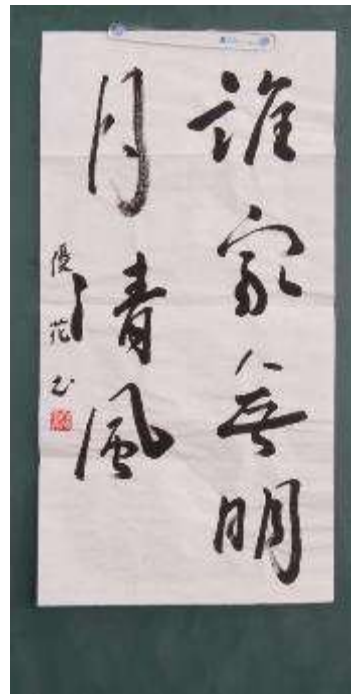 誰家無明
月清風
優花書